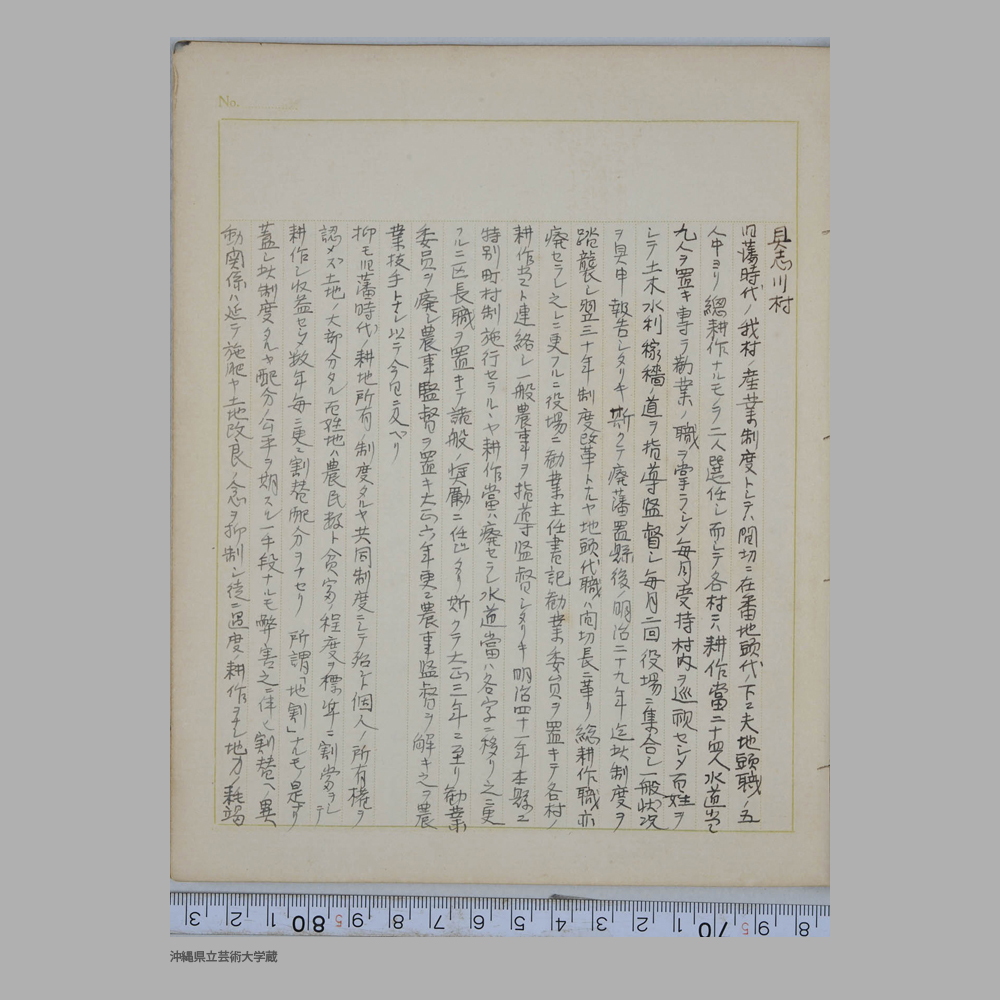 No.
具志川村
旧藩時代ノ我村ノ産業制度トシテハ間切ニ在番地頭代ノ下ニ夫地頭職ノ五
人中ヨリ総耕作ナルモノヲ二人選任シ而シテ各村ニハ耕作當二十四人水道当
九人ヲ置キ専ラ勧業ノ職ヲ掌ラシメ毎月受持村内ヲ巡視セシメ百姓ヲ
シテ土木水利稼穡ノ道ヲ指導監督シ毎月二回役場ニ集合シ一般状况
ヲ具申報告シタリキ斯クテ廃藩置縣後ノ明治二十九年迄此制度ヲ
踏襲シ翌三十年制度改革トナルヤ地頭代職ハ間切長ニ革リ総耕作職亦
廃セラレ之レニ更フルニ役場ニ勧業主任書記勧業委員ヲ置キテ各村ノ
耕作当ト連絡シ一般農事ヲ指導監督シタリキ明治四十一年本縣ニ
特別町村制施行セラルヽヤ耕作當ハ廃セラレ水道當ハ各字ニ移リ之ニ更
フルニ区長職ヲ置キテ諸般ノ奨励ニ任ゼリ斯クテ大正三年ニ至リ勧業
委員ヲ廃シ農事監督ヲ置キ大正六年更ニ農事監督ヲ解キ之ヲ農
業技手トナシ以テ今日ニ及ヘリ
抑モ旧藩時代ノ耕地所有ノ制度タルヤ共同制度ニシテ殆ンド個人ノ所有権ヲ
認メズ土地ノ大部分タル百姓地ハ農民数ト貧富ノ程度ヲ標準ニ割當ヲシテ
耕作シ収益セシメ数年毎ニ更ニ割替配分ヲナセリ 所謂「地割」ナルモノ是ナリ
蓋シ此制度タルヤ配分ノ公平ヲ期スル一手段ナルモ弊害之ニ伴ヒ割替ヘノ異
動関係ハ延テ施肥ヤ土地改良ノ念ヲ抑制シ徒ニ過度ノ耕作ヲナシ地力ノ耗竭
3 2 1 80 9 8 7 6 5 4 3 2 1 70 9 8
沖縄県立芸術大学蔵